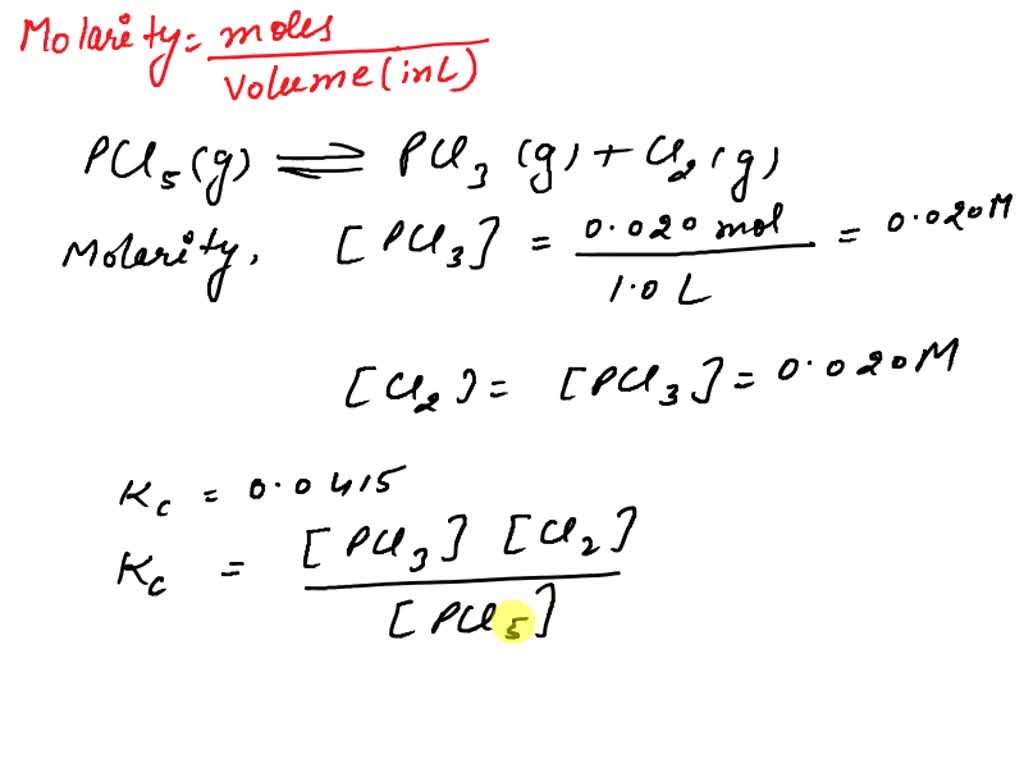 Molarity = moles / Volume (in L)
PCl5 (g) ⇌ PCl3 (g) + Cl2 (g)
Molarity, [PCl3] = 0.020 mol / 1.0 L = 0.020 M
[Cl2] = [PCl3] = 0.020 M
Kc = 0.0415
Kc = [PCl3] [Cl2] / [PCl5]